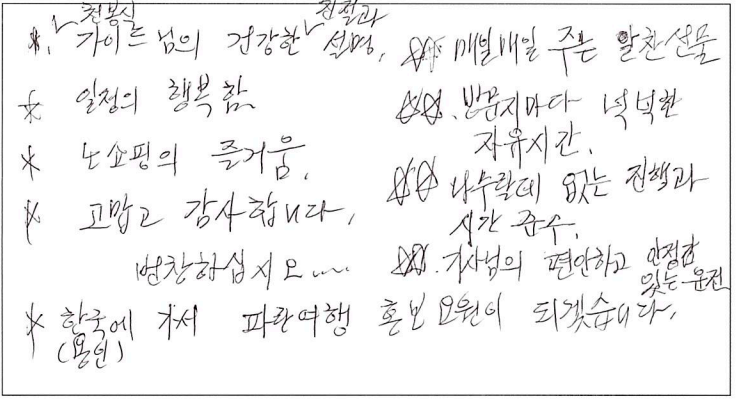 *. 천봉실 가이드님의 건강한 친절과 설명.
* 일정의 행복함
* 노쇼핑의 즐거움.
* 고맙고 감사합니다.
번창하십시오....
* 한국에 가서 파란여행 홍보요원이 되겠습니다.
(용인)
☆☆. 매일매일 주는 알찬선물
☆☆. 방문지마다 넉넉한
자유시간.
☆☆ 나무랄데 없는 진행과
시간 준수.
☆☆. 기사님의 편안하고 안정감
있는 운전